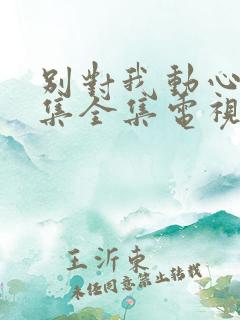 別對我動心
集全集電視
王沂東
未經同意禁止轉載